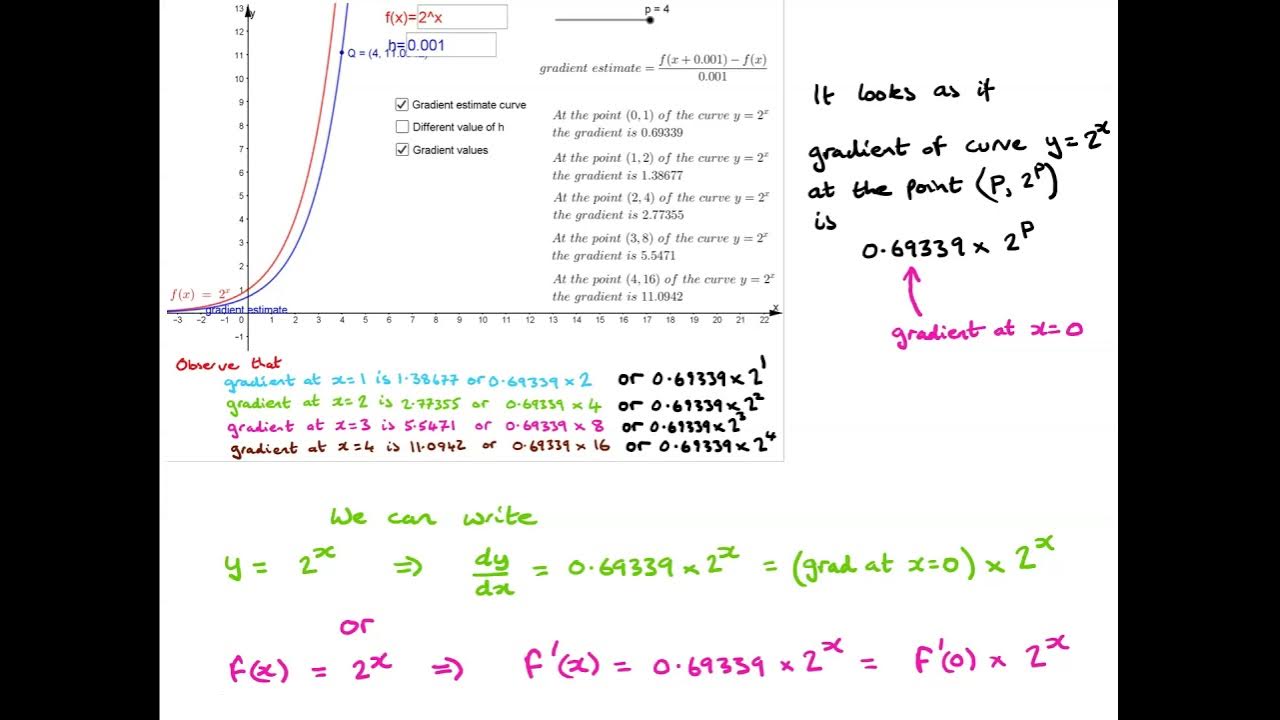 f(x)= 2^x
h= 0.001
p = 4
y
13
12
11
10
9
8
7
6
5
4
3
2
1
0
−1
−3 −2 −1 0 1 2 3 4 5 6 7 8 9 10 11 12 13 14 15 16 17 18 19 20 21 22
x
Q = (4, 11.0
f(x) = 2^x
gradient estimate
Gradient estimate curve
Different value of h
Gradient values
gradient estimate = (f(x + 0.001) − f(x))/0.001
At the point (0, 1) of the curve y = 2^x
the gradient is 0.69339
At the point (1, 2) of the curve y = 2^x
the gradient is 1.38677
At the point (2, 4) of the curve y = 2^x
the gradient is 2.77355
At the point (3, 8) of the curve y = 2^x
the gradient is 5.5471
At the point (4, 16) of the curve y = 2^x
the gradient is 11.0942
It looks as if
gradient of curve y=2^x
at the point (P, 2^P)
is
0.69339 × 2^P
gradient at x=0
Observe that
gradient at x=1 is 1.38677 or 0.69339 × 2 or 0.69339 × 2^1
gradient at x=2 is 2.77355 or 0.69339 × 4 or 0.69339 × 2^2
gradient at x=3 is 5.5471 or 0.69339 × 8 or 0.69339 × 2^3
gradient at x=4 is 11.0942 or 0.69339 × 16 or 0.69339 × 2^4
We can write
y = 2^x ⇒ dy/dx = 0.69339 × 2^x = (grad at x=0) × 2^x
or
f(x) = 2^x ⇒ f'(x) = 0.69339 × 2^x = f'(0) × 2^x